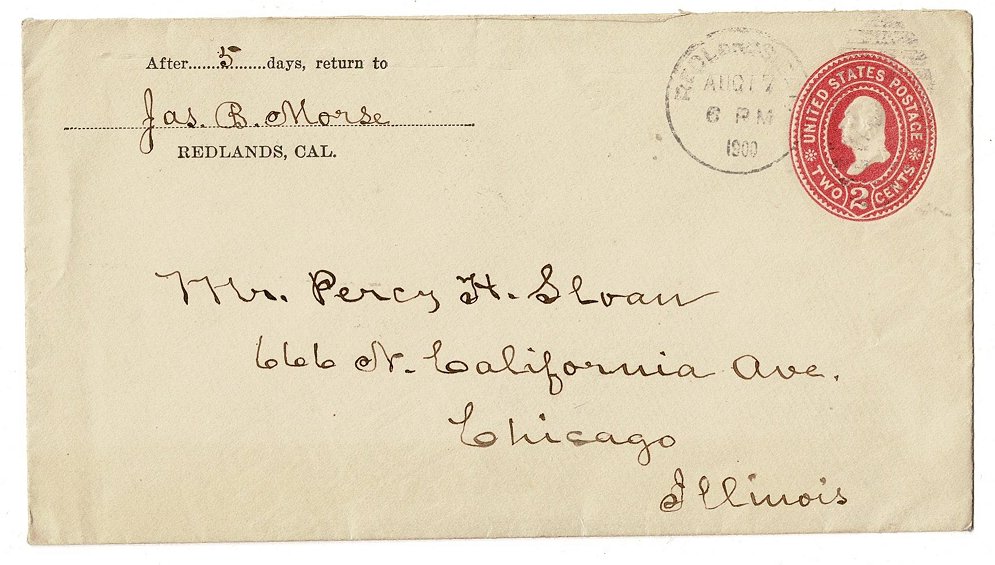 After.......5.......days, return to
Jas. B. Morse
REDLANDS, CAL.
REDLANDS
AUG 17
6 PM
1900
UNITED STATES POSTAGE
TWO 2 CENTS
Mr. Percy H. Sloan
666 N. California Ave.
Chicago
Illinois